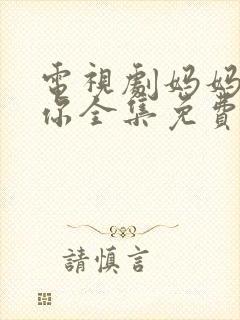 電視劇妈妈
你全集免費
請慎言